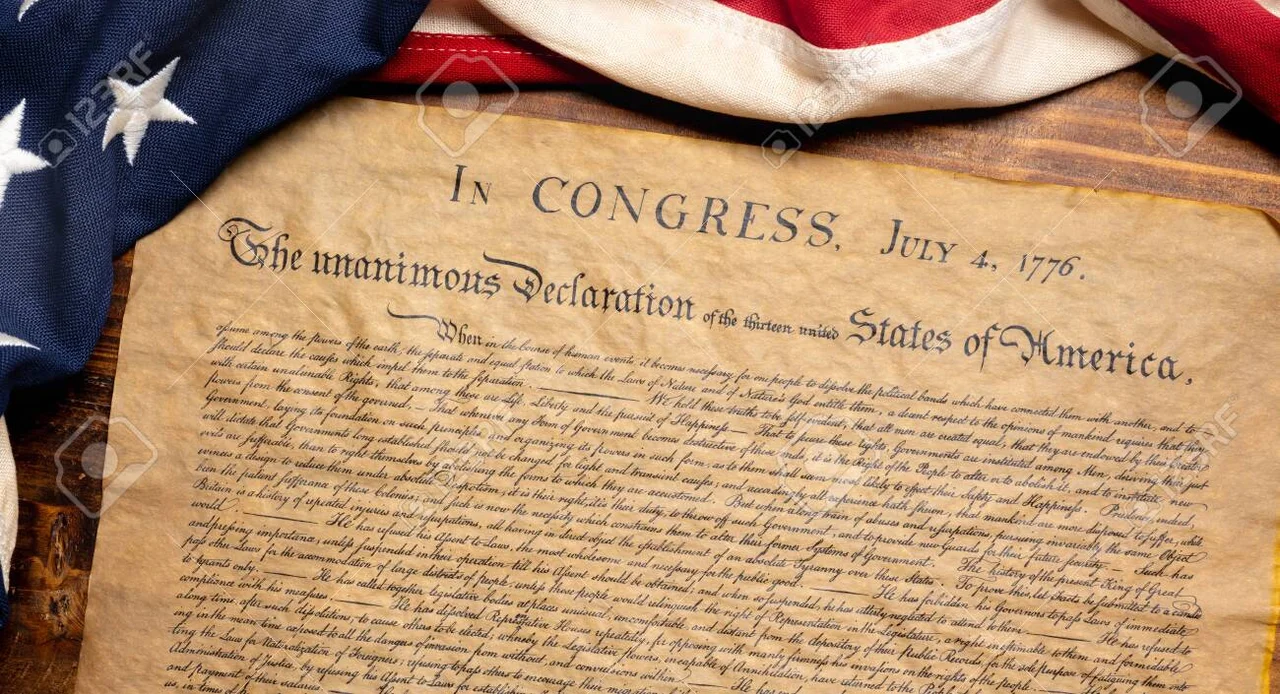 In CONGRESS, July 4, 1776.
The unanimous Declaration of the thirteen united States of America,
When in the Course of human events, it becomes necessary for one people to dissolve the political bands which have connected them with another, and to
assume among the powers of the earth, the separate and equal station to which the Laws of Nature and of Nature's God entitle them, a decent respect to the opinions of mankind requires that they
should declare the causes which impel them to the separation. We hold these truths to be self-evident, that all men are created equal, that they are endowed by their Creator
with certain unalienable Rights, that among these are Life, Liberty and the pursuit of Happiness.— That to secure these rights, Governments are instituted among Men, deriving their just
powers from the consent of the governed,— That whenever any Form of Government becomes destructive of these ends, it is the Right of the People to alter or to abolish it, and to institute new
Government, laying its foundation on such principles and organizing its powers in such form, as to them shall seem most likely to effect their Safety and Happiness. Prudence, indeed,
will dictate that Governments long established should not be changed for light and transient causes; and accordingly all experience hath shewn, that mankind are more disposed to suffer, while
evils are sufferable, than to right themselves by abolishing the forms to which they are accustomed. But when a long train of abuses and usurpations, pursuing invariably the same Object
evinces a design to reduce them under absolute Despotism, it is their right, it is their duty, to throw off such Government, and to provide new Guards for their future security.— Such has
been the patient sufferance of these Colonies; and such is now the necessity which constrains them to alter their former Systems of Government. The history of the present King of Great
Britain is a history of repeated injuries and usurpations, all having in direct object the establishment of an absolute Tyranny over these States. To prove this, let Facts be submitted to a candid
world. He has refused his Assent to Laws, the most wholesome and necessary for the public good. He has forbidden his Governors to pass Laws of immediate
and pressing importance, unless suspended in their operation till his Assent should be obtained; and when so suspended, he has utterly neglected to attend to them. He has refused to
pass other Laws for the accommodation of large districts of people, unless those people would relinquish the right of Representation in the Legislature, a right inestimable to them and formidable
to tyrants only. He has called together legislative bodies at places unusual, uncomfortable, and distant from the depository of their public Records, for the sole purpose of fatiguing them into
compliance with his measures. He has dissolved Representative Houses repeatedly, for opposing with manly firmness his invasions on the rights of the people.
along time, after such dissolutions, to cause others to be elected; whereby the Legislative powers, incapable of Annihilation, have returned to the
ing in the mean time exposed to all the dangers of invasion from without, and convulsions within. He has
ting the Laws for Naturalization of Foreigners; refusing to pass others to encourage their migration
Administration of Justice, by refusing his Assent to Laws for
and payment of their salaries.
as, in times of
123RF
123RF
123RF
123RF